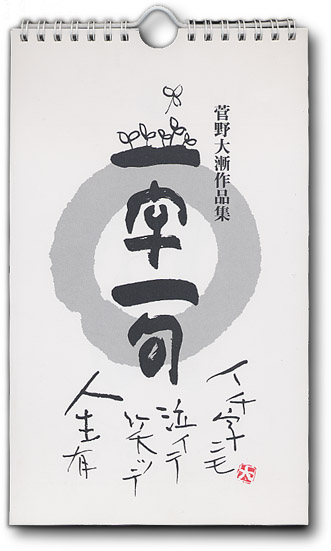 菅野大漸作品集
一字一句
イチ字ニモ
泣イテ
笑ッテ
人生有
大